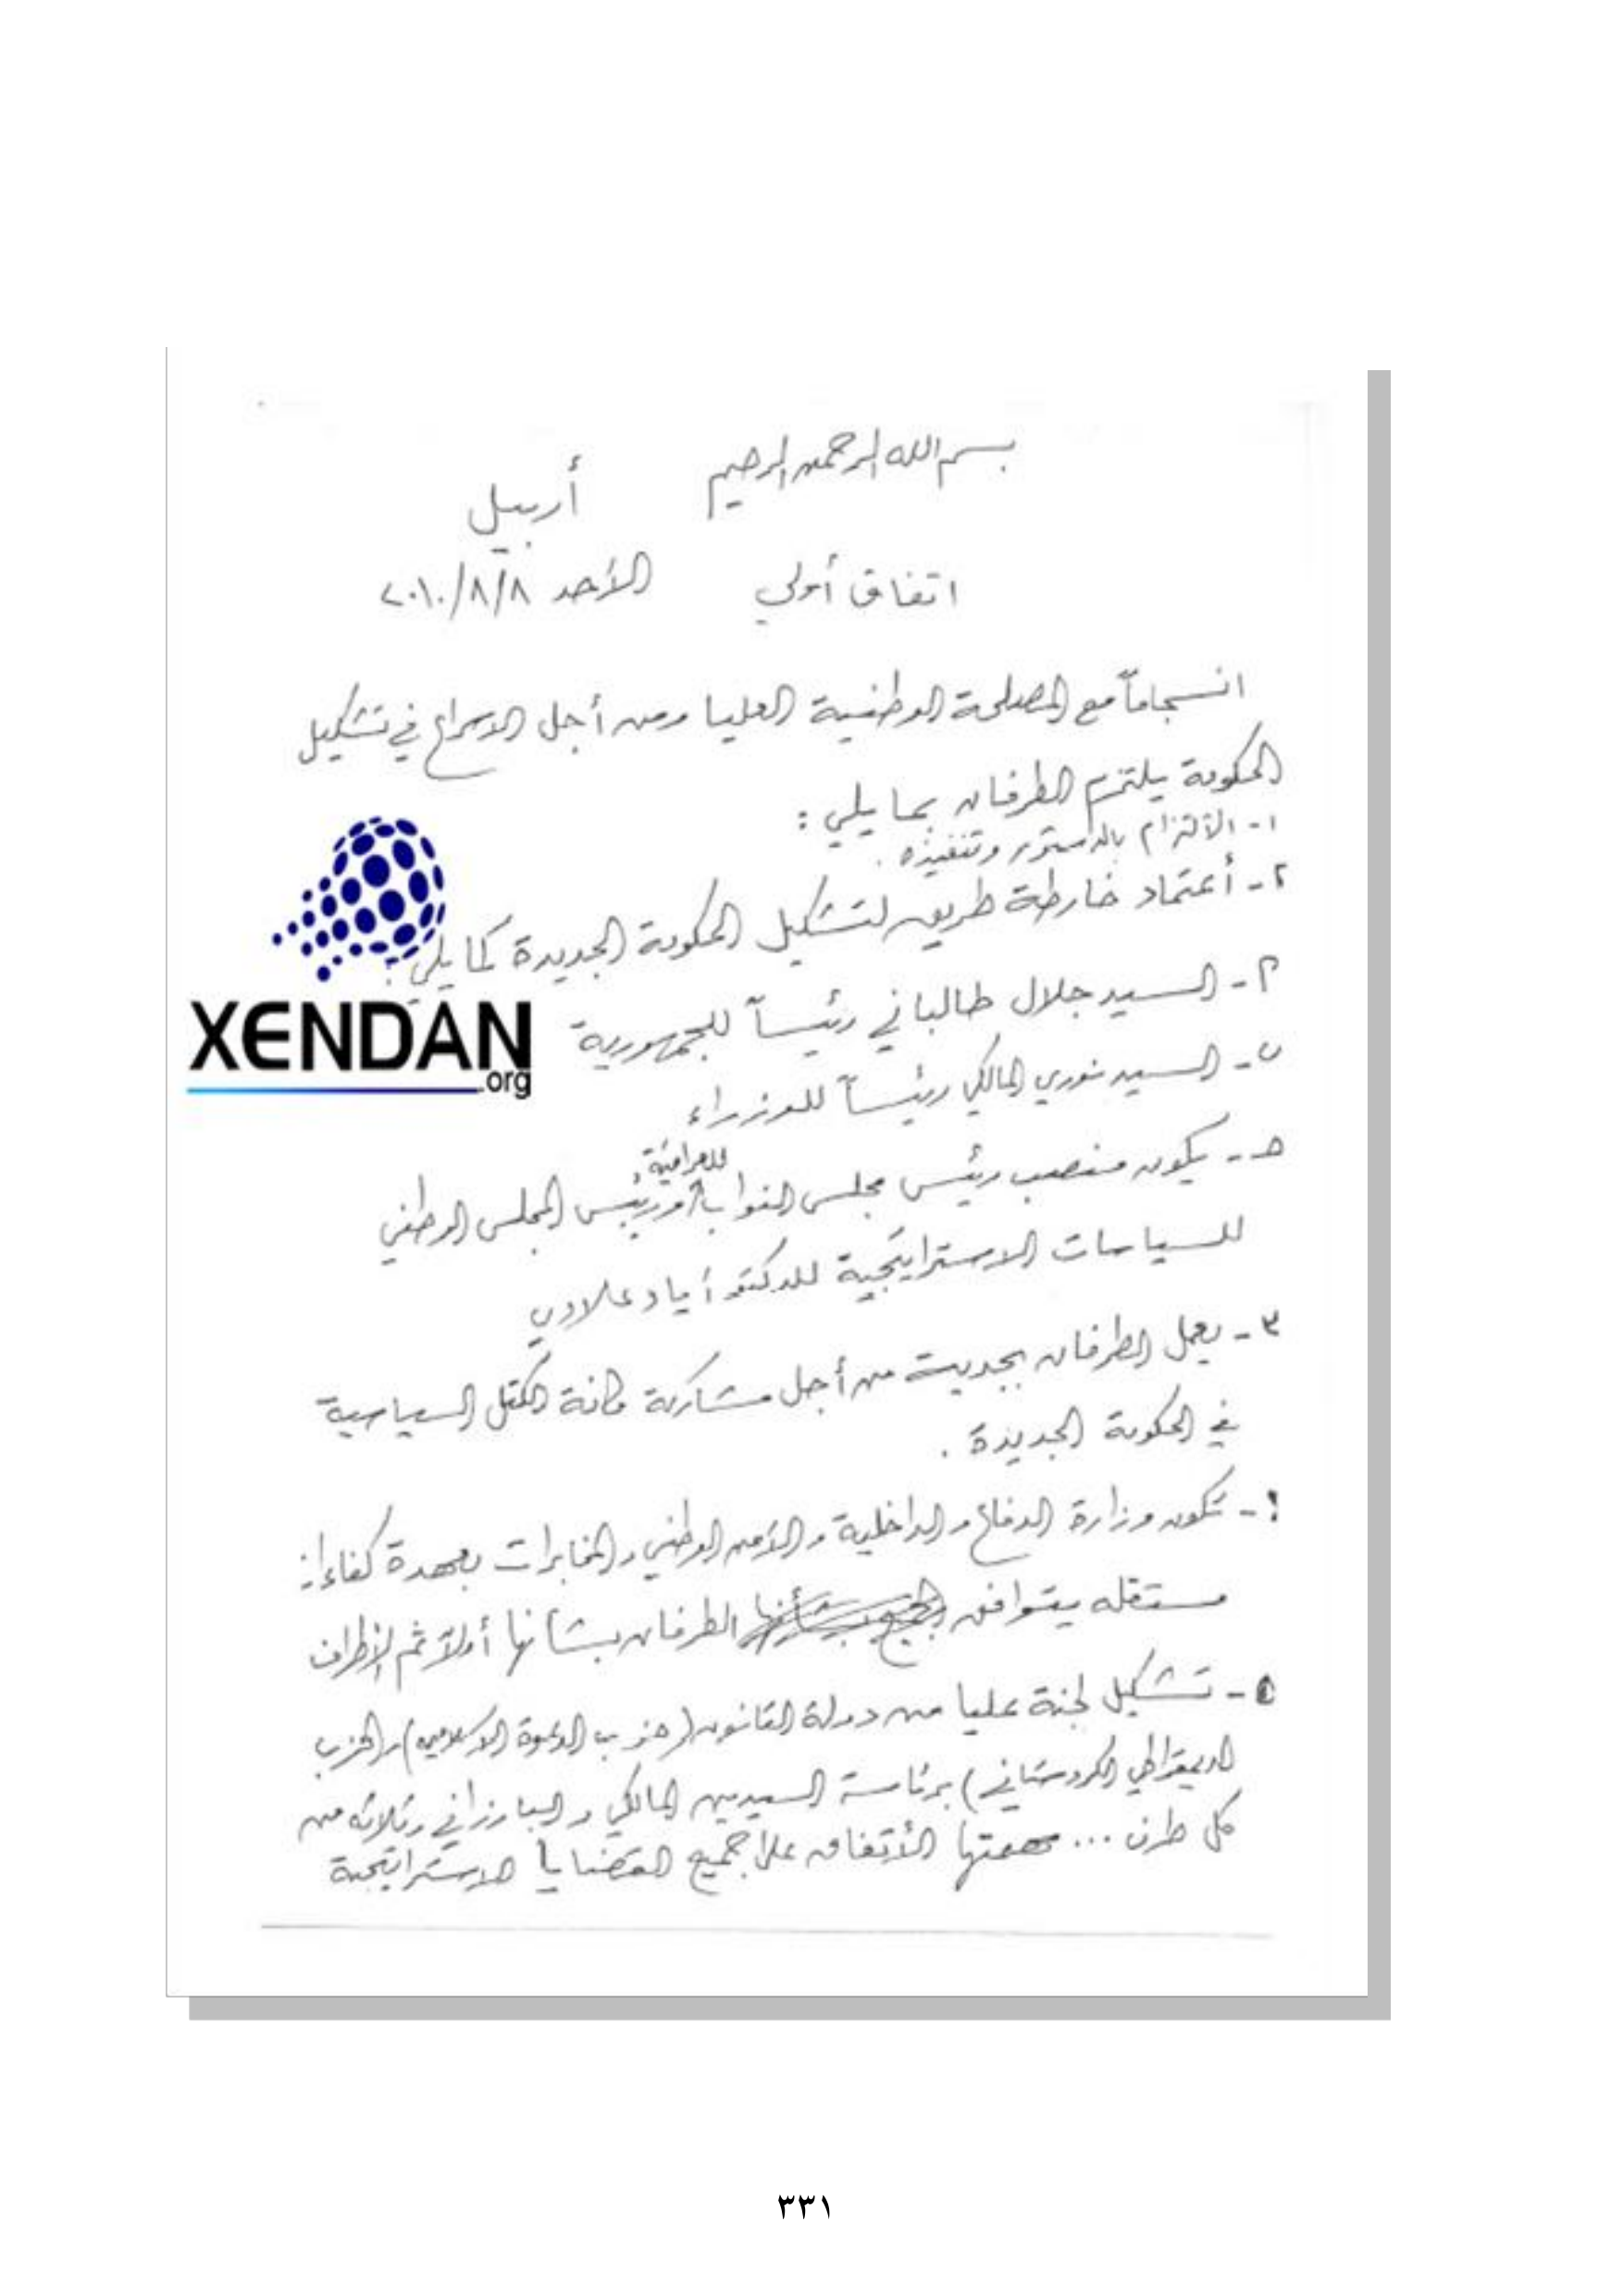 بسم الله الرحمن الرحيم
أربيل
اتفاق أولي الأحد ٢٠١٠/٨/٨
انسجاماً مع المصلحة الوطنية العليا ومن أجل الاسراع في تشكيل
الحكومة يلتزم الطرفان بما يلي :
١- الألتزام بالدستور وتنفيذه .
٢- أعتماد خارطة طريق لتشكيل الحكومة الجديدة كما يلي :
٢- السيد جلال طالباني رئيساً للجمهورية
ب- السيد نوري المالكي رئيساً للوزراء
حـ - يكون منصب رئيس مجلس النواب للعراقية, أو رئيس المجلس الوطني
للسياسات الاستراتيجية للدكتور أياد علاوي
٣- يعمل الطرفان بجدية من أجل مشاركة كافة الكتل السياسية
في الحكومة الجديدة .
٤- تكون وزارة الدفاع والداخلية والأمن الوطني والمخابرات بعهدة كفاءات
مستقله يتوافق الطرفان بشأنها أولاً ثم الأطراف
٥- تشكيل لجنة عليا من دولة القانون (حزب الدعوة الاسلامية) والحزب
الديمقراطي الكردستاني) برئاسة السيدين المالكي والبارزاني وثلاثه من
كل طرف ... مهمتها الأتفاق على جميع القضايا الاستراتيجية
XENDAN
.org
٣٣١